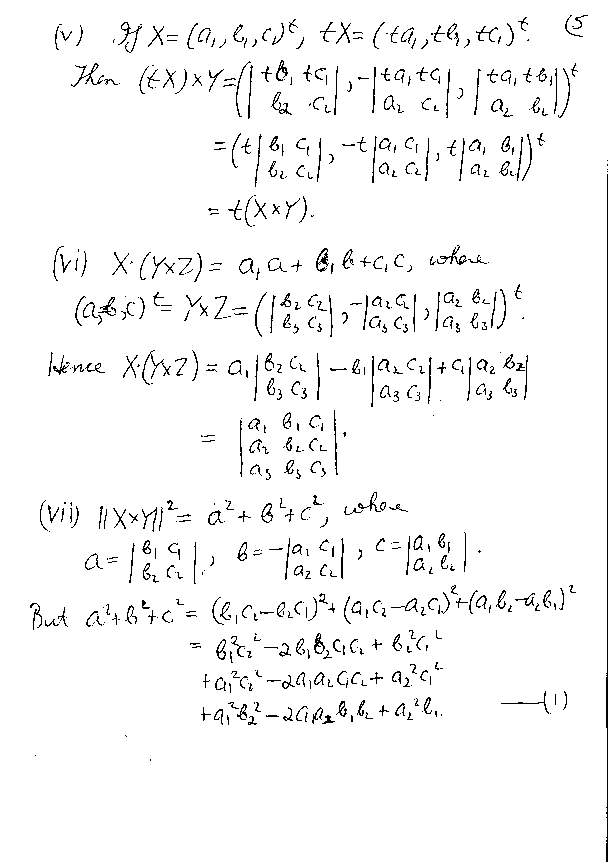 (v) If X = (a₁, b₁, c₁)ᵗ, tX = (ta₁, tb₁, tc₁)ᵗ. (5
Then (tX)×Y = (|tb₁ tc₁; b₂ c₂|, −|ta₁ tc₁; a₂ c₂|, |ta₁ tb₁; a₂ b₂|)ᵗ
= (t|b₁ c₁; b₂ c₂|, −t|a₁ c₁; a₂ c₂|, t|a₁ b₁; a₂ b₂|)ᵗ
= t(X×Y).
(vi) X·(Y×Z) = a₁a + b₁b + c₁c, where
(a,b,c)ᵗ = Y×Z = (|b₂ c₂; b₃ c₃|, −|a₂ c₂; a₃ c₃|, |a₂ b₂; a₃ b₃|)ᵗ.
Hence X·(Y×Z) = a₁|b₂ c₂; b₃ c₃| − b₁|a₂ c₂; a₃ c₃| + c₁|a₂ b₂; a₃ b₃|
= |a₁ b₁ c₁; a₂ b₂ c₂; a₃ b₃ c₃|.
(vii) ||X×Y||² = a² + b² + c², where
a = |b₁ c₁; b₂ c₂|, b = −|a₁ c₁; a₂ c₂|, c = |a₁ b₁; a₂ b₂|.
But a² + b² + c² = (b₁c₂ − b₂c₁)² + (a₁c₂ − a₂c₁)² + (a₁b₂ − a₂b₁)²
= b₁²c₂² − 2b₁b₂c₁c₂ + b₂²c₁²
+ a₁²c₂² − 2a₁a₂c₁c₂ + a₂²c₁²
+ a₁²b₂² − 2a₁a₂b₁b₂ + a₂²b₁. —(1)